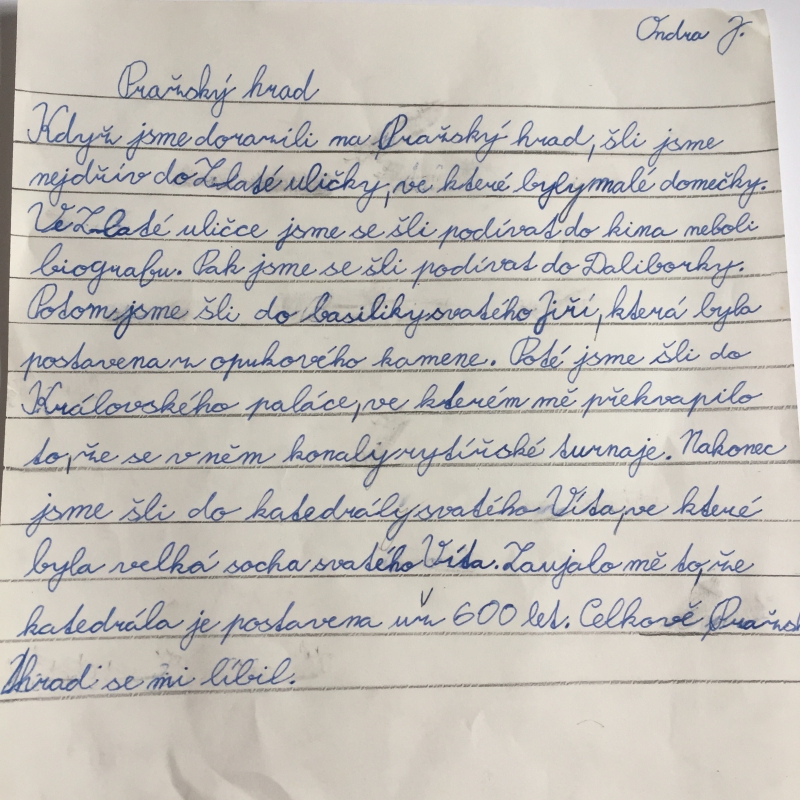 Ondra J.
Pražský hrad
Když jsme dorazili na Pražský hrad, šli jsme
nejdřív do Zlaté uličky, ve které byly malé domečky.
Ve Zlaté uličce jsme se šli podívat do kina neboli
biografu. Pak jsme se šli podívat do Daliborky.
Potom jsme šli do basiliky svatého Jiří, která byla
postavena z opukového kamene. Poté jsme šli do
Královského paláce, ve kterém mě překvapilo
to, že se v něm konaly rytířské turnaje. Nakonec
jsme šli do katedrály svatého Víta, ve které
byla velká socha svatého Víta. Zaujalo mě to, že
katedrála je postavena už 600 let. Celkově Pražsk
hrad se mi líbil.